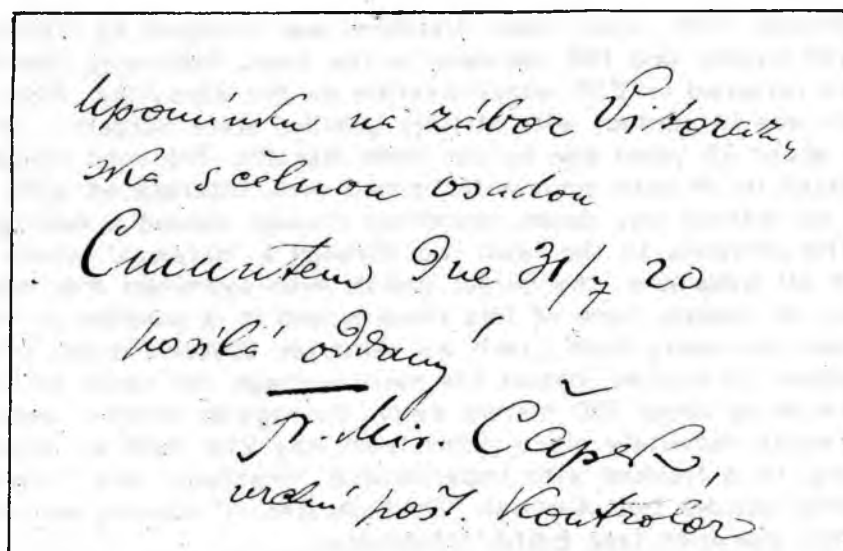 Upomínku na zábor Vitoraz-
ska s celnou osadou
Cmuntem dne 31/7 20
posílá oddaný
Čapek,
vrchní pošt. kontrolór